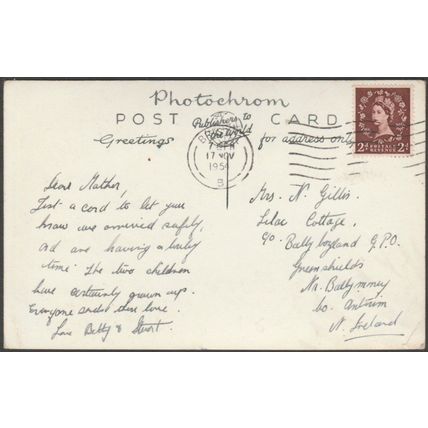 Photochrom
POST CARD
Publishers to
the World
Greetings
for address only
BRISTOL
17 NOV
1954
2D POSTAGE REVENUE 2D
Dear Mother,
Just a card to let you
know we arrived safely,
and are having a lovely
time. The two children
have certainly grown up.
Everyone sends their love.
Love Betty & Stuart.
Mrs. N. Gillis
Lilac Cottage,
c/o Ballyboyland G.P.O.
Greenshields
Nr. Ballymoney
Co. Antrim
N. Ireland